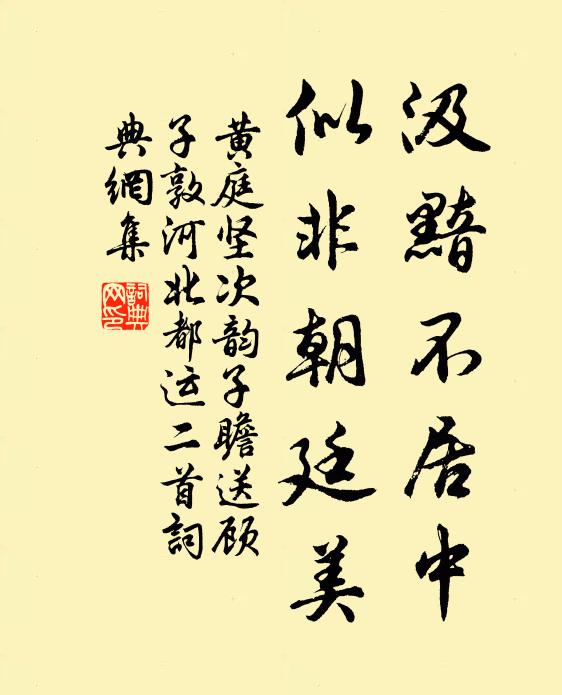 汲黯不居中
似非朝廷美
黄庭坚次韵子瞻送顾
子敦河北都运二首詞
典網集
詞典
网印